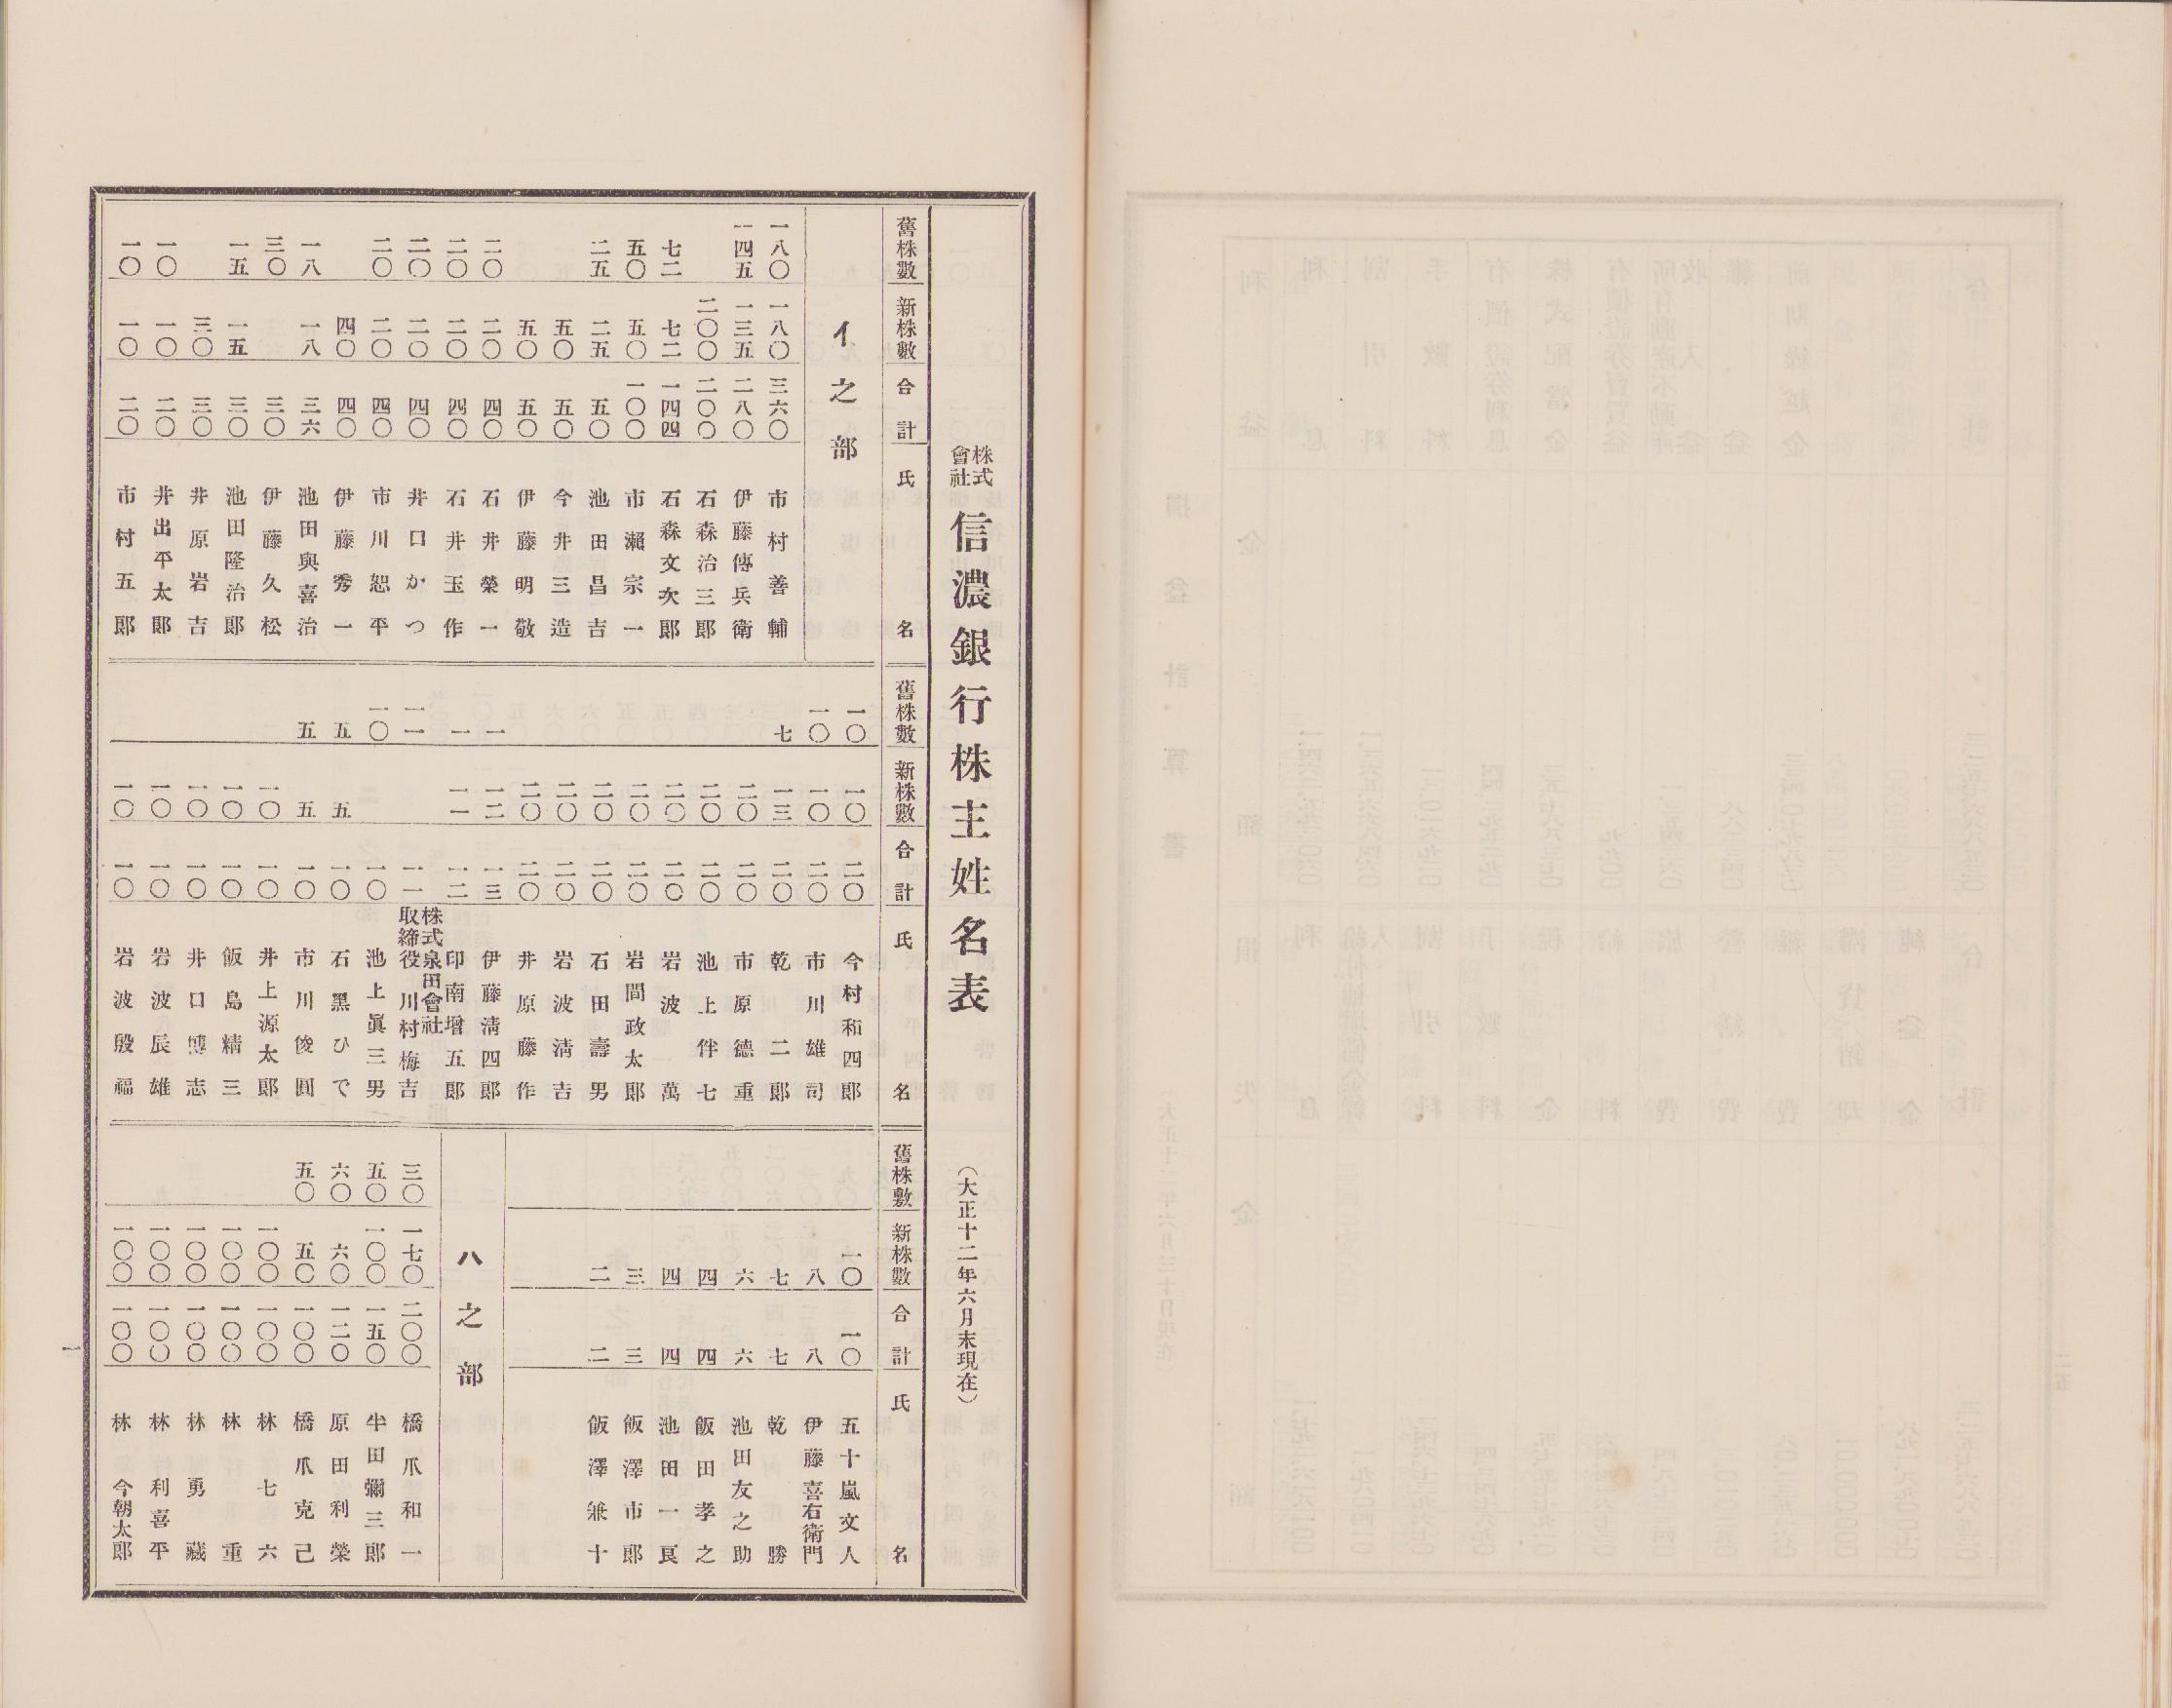 株式會社 信濃銀行株主姓名表 (大正十二年六月末現在)
舊株數 新株數 合計 氏名
イ之部
一八〇 一八〇 三六〇 市村善輔
一四五 一三五 二八〇 伊藤傳兵衛
二〇〇 二〇〇 石森治三郎
七二 七二 一四四 石森文次郎
五〇 五〇 一〇〇 市瀨宗一
二五 二五 五〇 池田昌吉
五〇 五〇 今井三造
五〇 五〇 伊藤明敬
二〇 二〇 四〇 石井榮一
二〇 二〇 四〇 石井玉作
二〇 二〇 四〇 井口かつ
二〇 二〇 四〇 市川恕平
四〇 四〇 伊藤秀一
一八 一八 三六 池田與喜治
三〇 三〇 伊藤久松
一五 一五 三〇 池田隆治郎
三〇 三〇 井原岩吉
一〇 一〇 二〇 井出平太郎
一〇 一〇 二〇 市村五郎
舊株數 新株數 合計 氏名
一〇 一〇 二〇 今村和四郎
一〇 一〇 二〇 市川雄司
七 一三 二〇 乾二郎
二〇 二〇 市原德重
二〇 二〇 池上伴七
二〇 二〇 岩波萬
二〇 二〇 岩間政太郎
二〇 二〇 石田壽男
二〇 二〇 岩波淸吉
二〇 二〇 井原藤作
一 一二 一三 伊藤淸四郎
一 一一 一二 印南增五郎
一一 一一 株式泉田會社
取締役川村梅吉
一〇 一〇 池上眞三男
五 五 一〇 石黑ひで
五 五 一〇 市川俊圓
一〇 一〇 井上源太郎
一〇 一〇 飯島精三
一〇 一〇 井口博志
一〇 一〇 岩波辰雄
一〇 一〇 岩波殷福
舊株數 新株數 合計 氏名
一〇 一〇 五十嵐文人
八 八 伊藤喜右衛門
七 七 乾勝
六 六 池田友之助
四 四 飯田孝之
四 四 池田一良
三 三 飯澤市郎
二 二 飯澤兼十
ハ之部
三〇 一七〇 二〇〇 橋爪和一
五〇 一〇〇 一五〇 半田彌三郎
六〇 六〇 一二〇 原田利榮
五〇 五〇 一〇〇 橋爪克己
一〇〇 一〇〇 林七六
一〇〇 一〇〇 林重
一〇〇 一〇〇 林勇藏
一〇〇 一〇〇 林利喜平
一〇〇 一〇〇 林今朝太郎
一